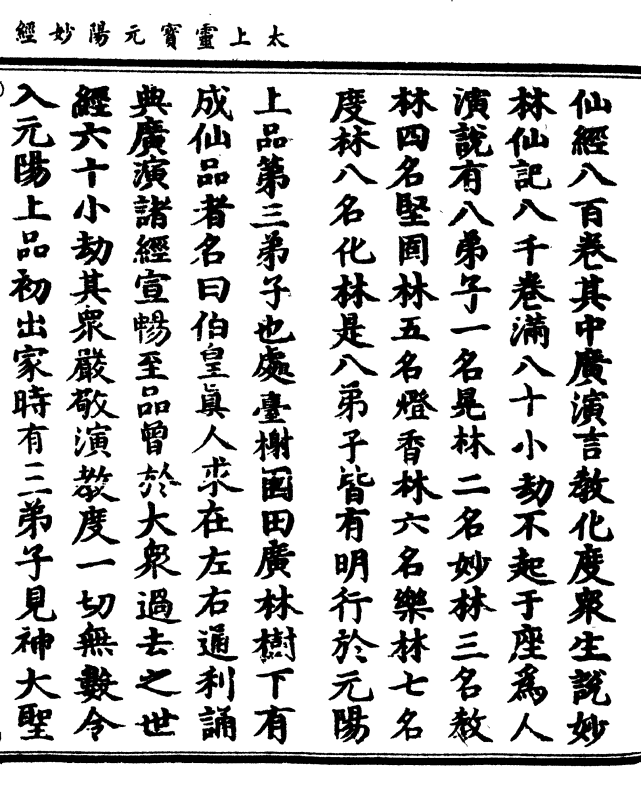 太上靈寳元陽妙經
仙經八百卷其中廣演言教化度衆生說妙
林仙記八千卷滿八十小劫不起于座爲人
演說有八弟子一名晃林二名妙林三名教
林四名堅固林五名燈香林六名樂林七名
度林八名化林是八弟子皆有明行於元陽
上品第三弟子也處臺榭園田廣林樹下有
成仙品者名曰伯皇眞人求在左右通利誦
典廣演諸經宣暢至品曾於大衆過去之世
經六十小劫其衆嚴敬演教度一切無數令
入元陽上品初出家時有三弟子見神大聖